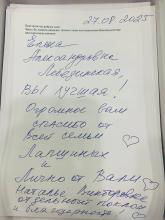 27.08.2025
Елена
Александровна
Лебединская,
Вы лучшая!
Огромное вам
спасибо от
всей семьи
Лапшиных
и
Лично от Вари
Наталье Викторовне
отдельный поклон
и благодарность